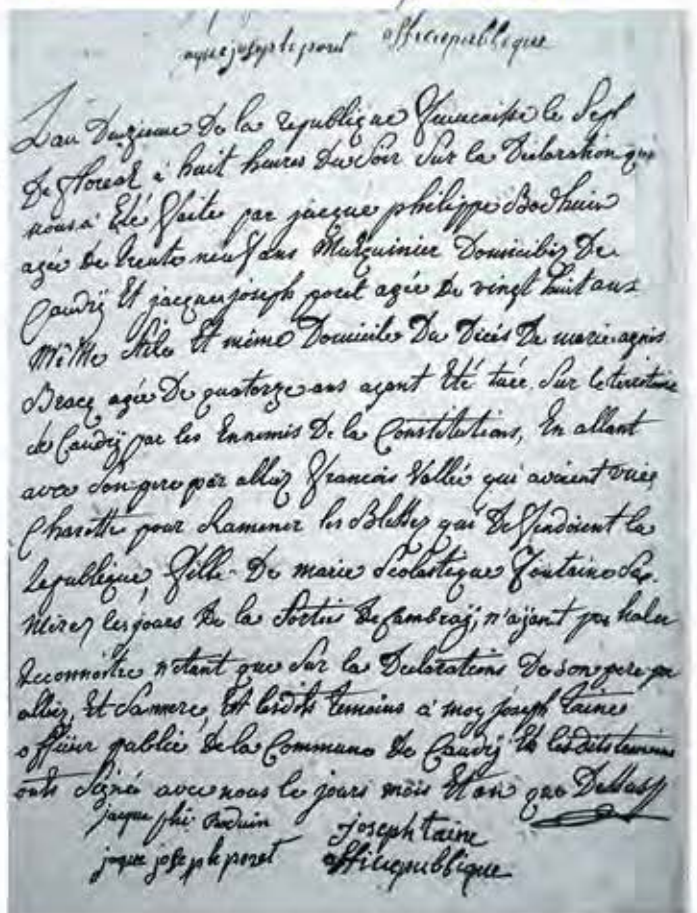 jaque joseph le poret officiepublique
Lan Deuzieme De la republique francaisse le Sept
De floreal à huit heures Du Soir Sur la Declaration qui
nous à Eté faite par jacque philippe Bodhuin
agée de trente neuf ans Mulquinier Domicibiez De
Caudrÿ Et jacque joseph poret agée De vingt huit ans
Même stile Et même Domicile Du Dicès De marie agnis
Bracq agée De quatorze ans ayant Eté tuée Sur le teritoire
de Caudrÿ par les Ennemis De la Constitutions, En allant
avec son pere par alliez francois Vallée qui avoient
Charette pour Ramener les Blessez qui Deffendoient la
Republique, fille De marie Scolastique fontaine
les jours De la Sortie De Cambraÿ, n'aÿant pas
Reconnoitre n'etant que Sur la Declarations De son pere par
alliez, Et Sa mere, Et lesdits temoins à moy joseph taine
officier public De la Commune De Caudrÿ Et lesdits temoins
onts Signé avec nous le jours mois Et an que Dessus
jaque phi Boduin joseph taine
jaque joseph le poret officiepublique